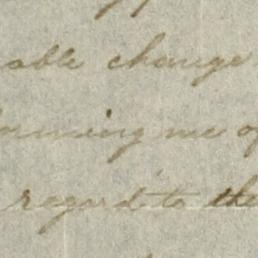 able change
me of
regard to the